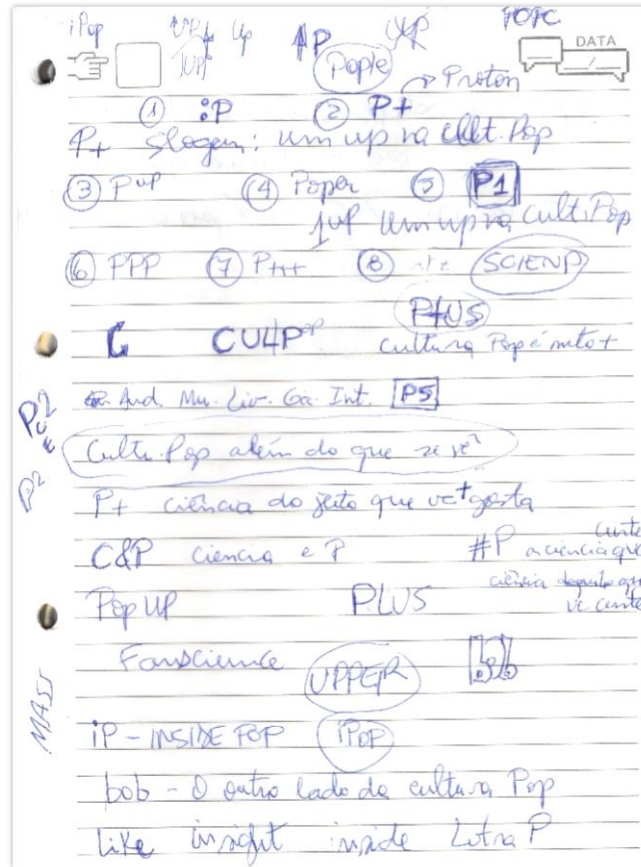 iPop Up 1P TOPC
DATA
1UP Pople
→ Proton
① :P ② P+
P+ slogan: um up na cult. Pop
③ Pup ④ Poper ⑤ P1
1UP um up na cult. Pop
⑥ PPP ⑦ P+++ ⑧ SCIENP
P+US
CULP
cultura Pop é muito +
Aud. Mu. Liv. Ga. Int. P5
Cult. Pop além do que se vê
P2
P+ ciência do jeito que vc + gosta
C&P ciencia e P #P a ciencia que
curte
Pop UP PLUS
ciência do jeito que
vc curte
Fanscience bob
UPPER
MASS
iP - INSIDE POP iPOP
bob - O outro lado da cultura Pop
Like insight inside Letra P